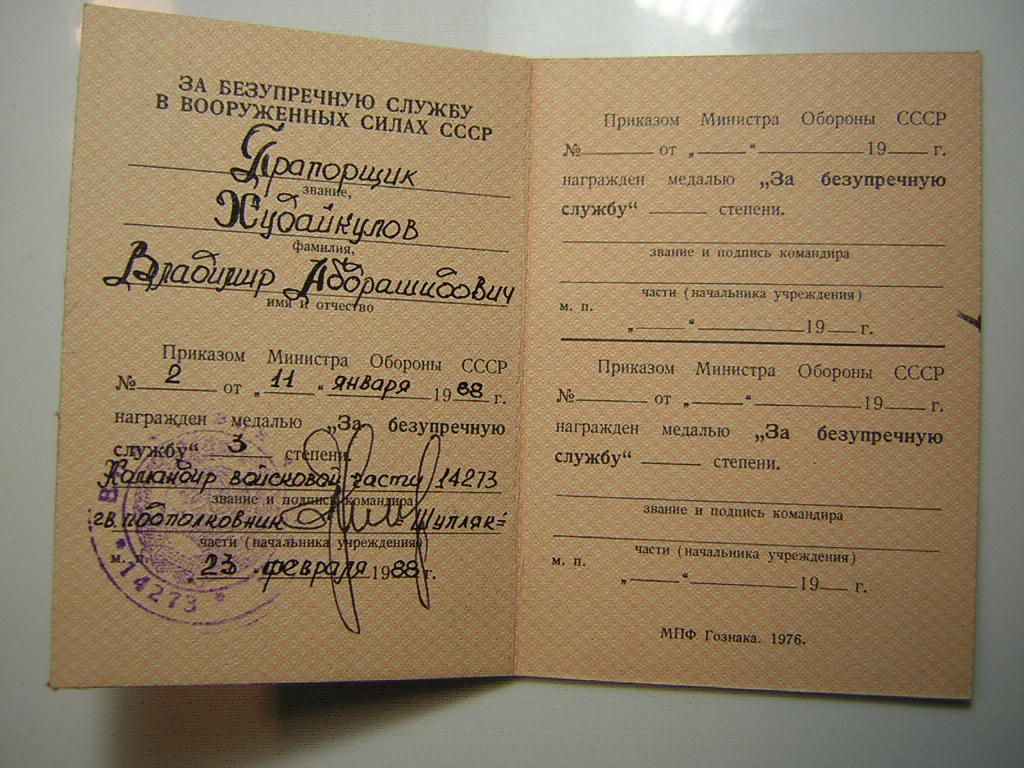 ЗА БЕЗУПРЕЧНУЮ СЛУЖБУ
В ВООРУЖЕННЫХ СИЛАХ СССР
Прапорщик
звание,
Худайкулов
фамилия,
Владимир Абдрашидович
имя и отчество
Приказом Министра Обороны СССР
№ 2 от „11“ января 1988 г.
награжден медалью „За безупречную
службу“ 3 степени.
Командир войсковой части 14273
звание и подпись командира
гв. подполковник =Шупляк=
части (начальника учреждения)
м. п. 23 февраля 1988 г.
* 14273 *
Приказом Министра Обороны СССР
№ от „ “ 19 г.
награжден медалью „За безупречную
службу“ степени.
звание и подпись командира
части (начальника учреждения)
м. п.
„ “ 19 г.
Приказом Министра Обороны СССР
№ от „ “ 19 г.
награжден медалью „За безупречную
службу“ степени.
звание и подпись командира
части (начальника учреждения)
м. п.
„ “ 19 г.
МПФ Гознака. 1976.